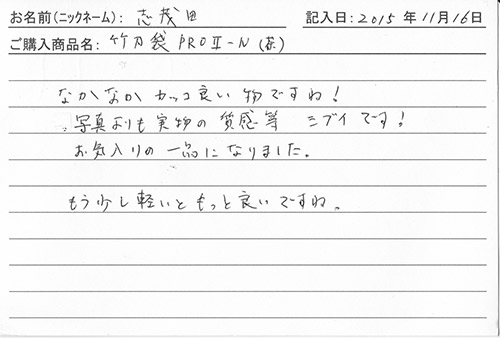 お名前(ニックネーム): 志茂田 記入日: 2015 年 11月 16日
ご購入商品名: 竹刀袋 PROⅡ-N (茶)
なかなかカッコ良い物ですね!
写真よりも実物の質感等 シブイです!
お気入りの一品になりました。
もう少し軽いともっと良いですね。